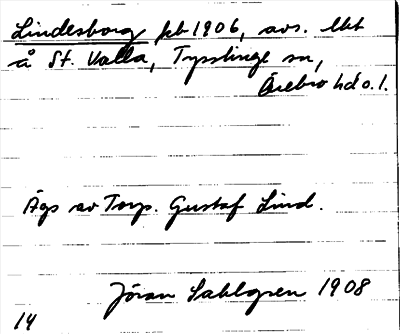 Lindesborg feb 1906, avs. lht
å St. Valla, Tysslinge sn,
Örebro hd o. l.
Ägs av Torp. Gustaf Lind.
Jöran Sahlgren 1908
14